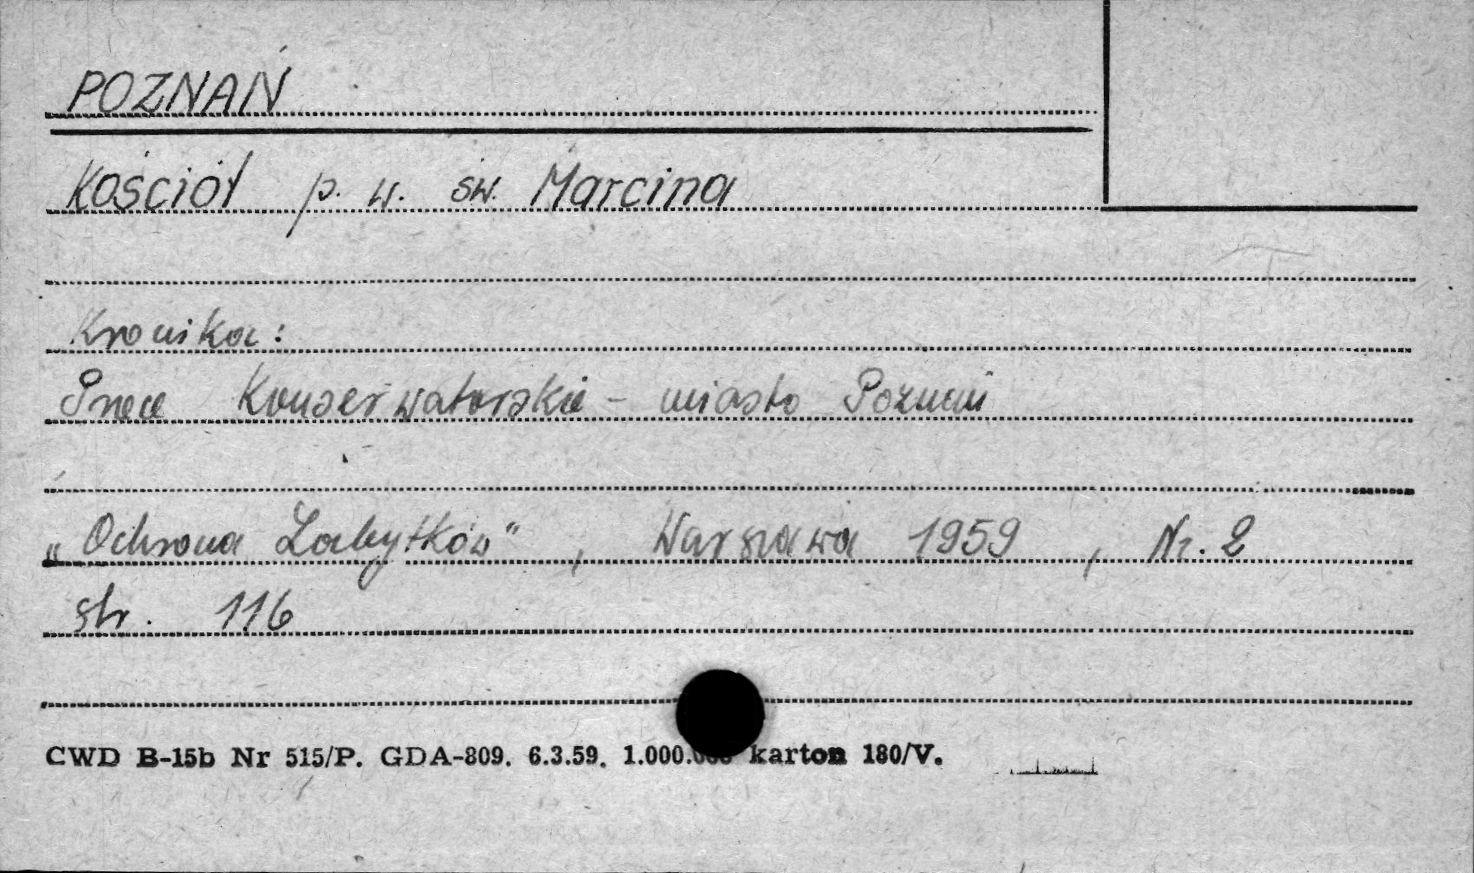 POZNAŃ
Kościół p. w. św. Marcina
Kronika:
Prace Konserwatorskie – miasto Poznań
„Ochrona Zabytków", Warszawa 1959, Nr. 2
str. 116
CWD B-15b Nr 515/P. GDA-809. 6.3.59. 1.000.000 karton 180/V.